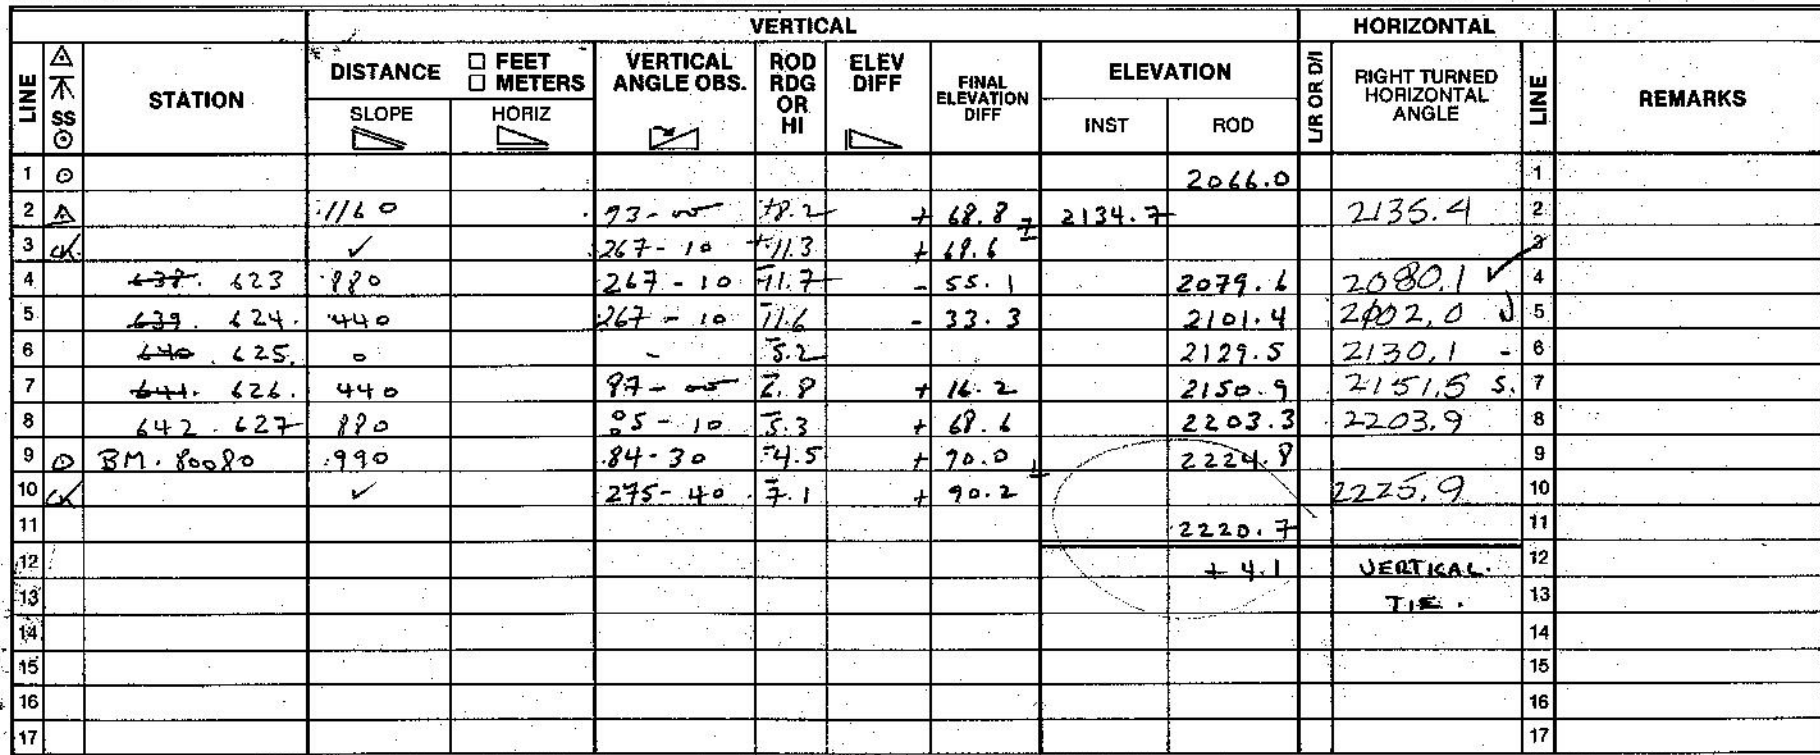 VERTICAL HORIZONTAL
LINE SS STATION DISTANCE □ FEET □ METERS VERTICAL ANGLE OBS. ROD RDG OR HI ELEV DIFF FINAL ELEVATION DIFF ELEVATION L/R OR D/I RIGHT TURNED HORIZONTAL ANGLE LINE REMARKS
SLOPE HORIZ INST ROD
1 2066.0 1
2 1160 93-00 +8.2 + 68.8 2134.7 2135.4 2
3 CK. ✓ 267-10 +11.3 + 68.6 3
4 638. 623 880 267-10 -11.7 - 55.1 2079.6 2080.1 ✓ 4
5 639. 624. 440 267-10 11.6 - 33.3 2101.4 2102.0 5
6 640. 625. 0 - -5.2 2129.5 2130.1 - 6
7 641. 626. 440 87-00 2.8 + 16.2 2150.9 2151.5 S. 7
8 642. 627 880 85-10 -5.3 + 68.6 2203.3 2203.9 8
9 BM. 80080 990 84-30 -4.5 + 90.0 2224.8 9
10 CK ✓ 275-40 -7.1 + 90.2 2225.9 10
11 2220.7 11
12 + 4.1 VERTICAL. 12
13 TIE. 13
14 14
15 15
16 16
17 17